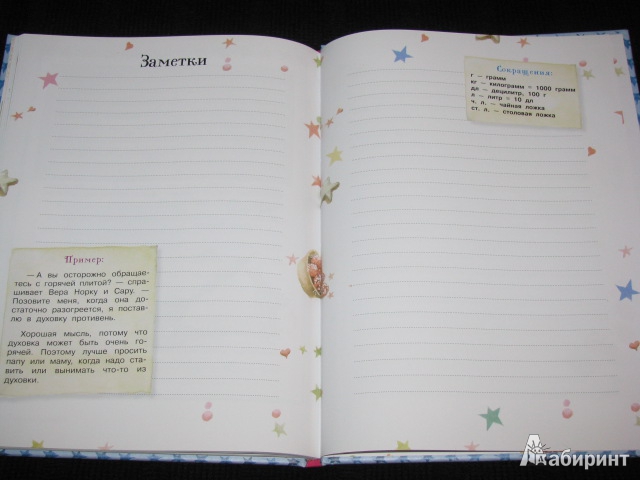 Заметки
Пример:
— А вы осторожно обращае-
тесь с горячей плитой? — спра-
шивает Вера Норку и Сару. —
Позовите меня, когда она до-
статочно разогреется, я постав-
лю в духовку противень.
Хорошая мысль, потому что
духовка может быть очень го-
рячей. Поэтому лучше просить
папу или маму, когда надо ста-
вить или вынимать что-то из
духовки.
Сокращения:
г — грамм
кг — килограмм = 1000 грамм
дс — децилитр, 100 г
л — литр = 10 дл
ч. л. — чайная ложка
ст. л. — столовая ложка
Лабиринт